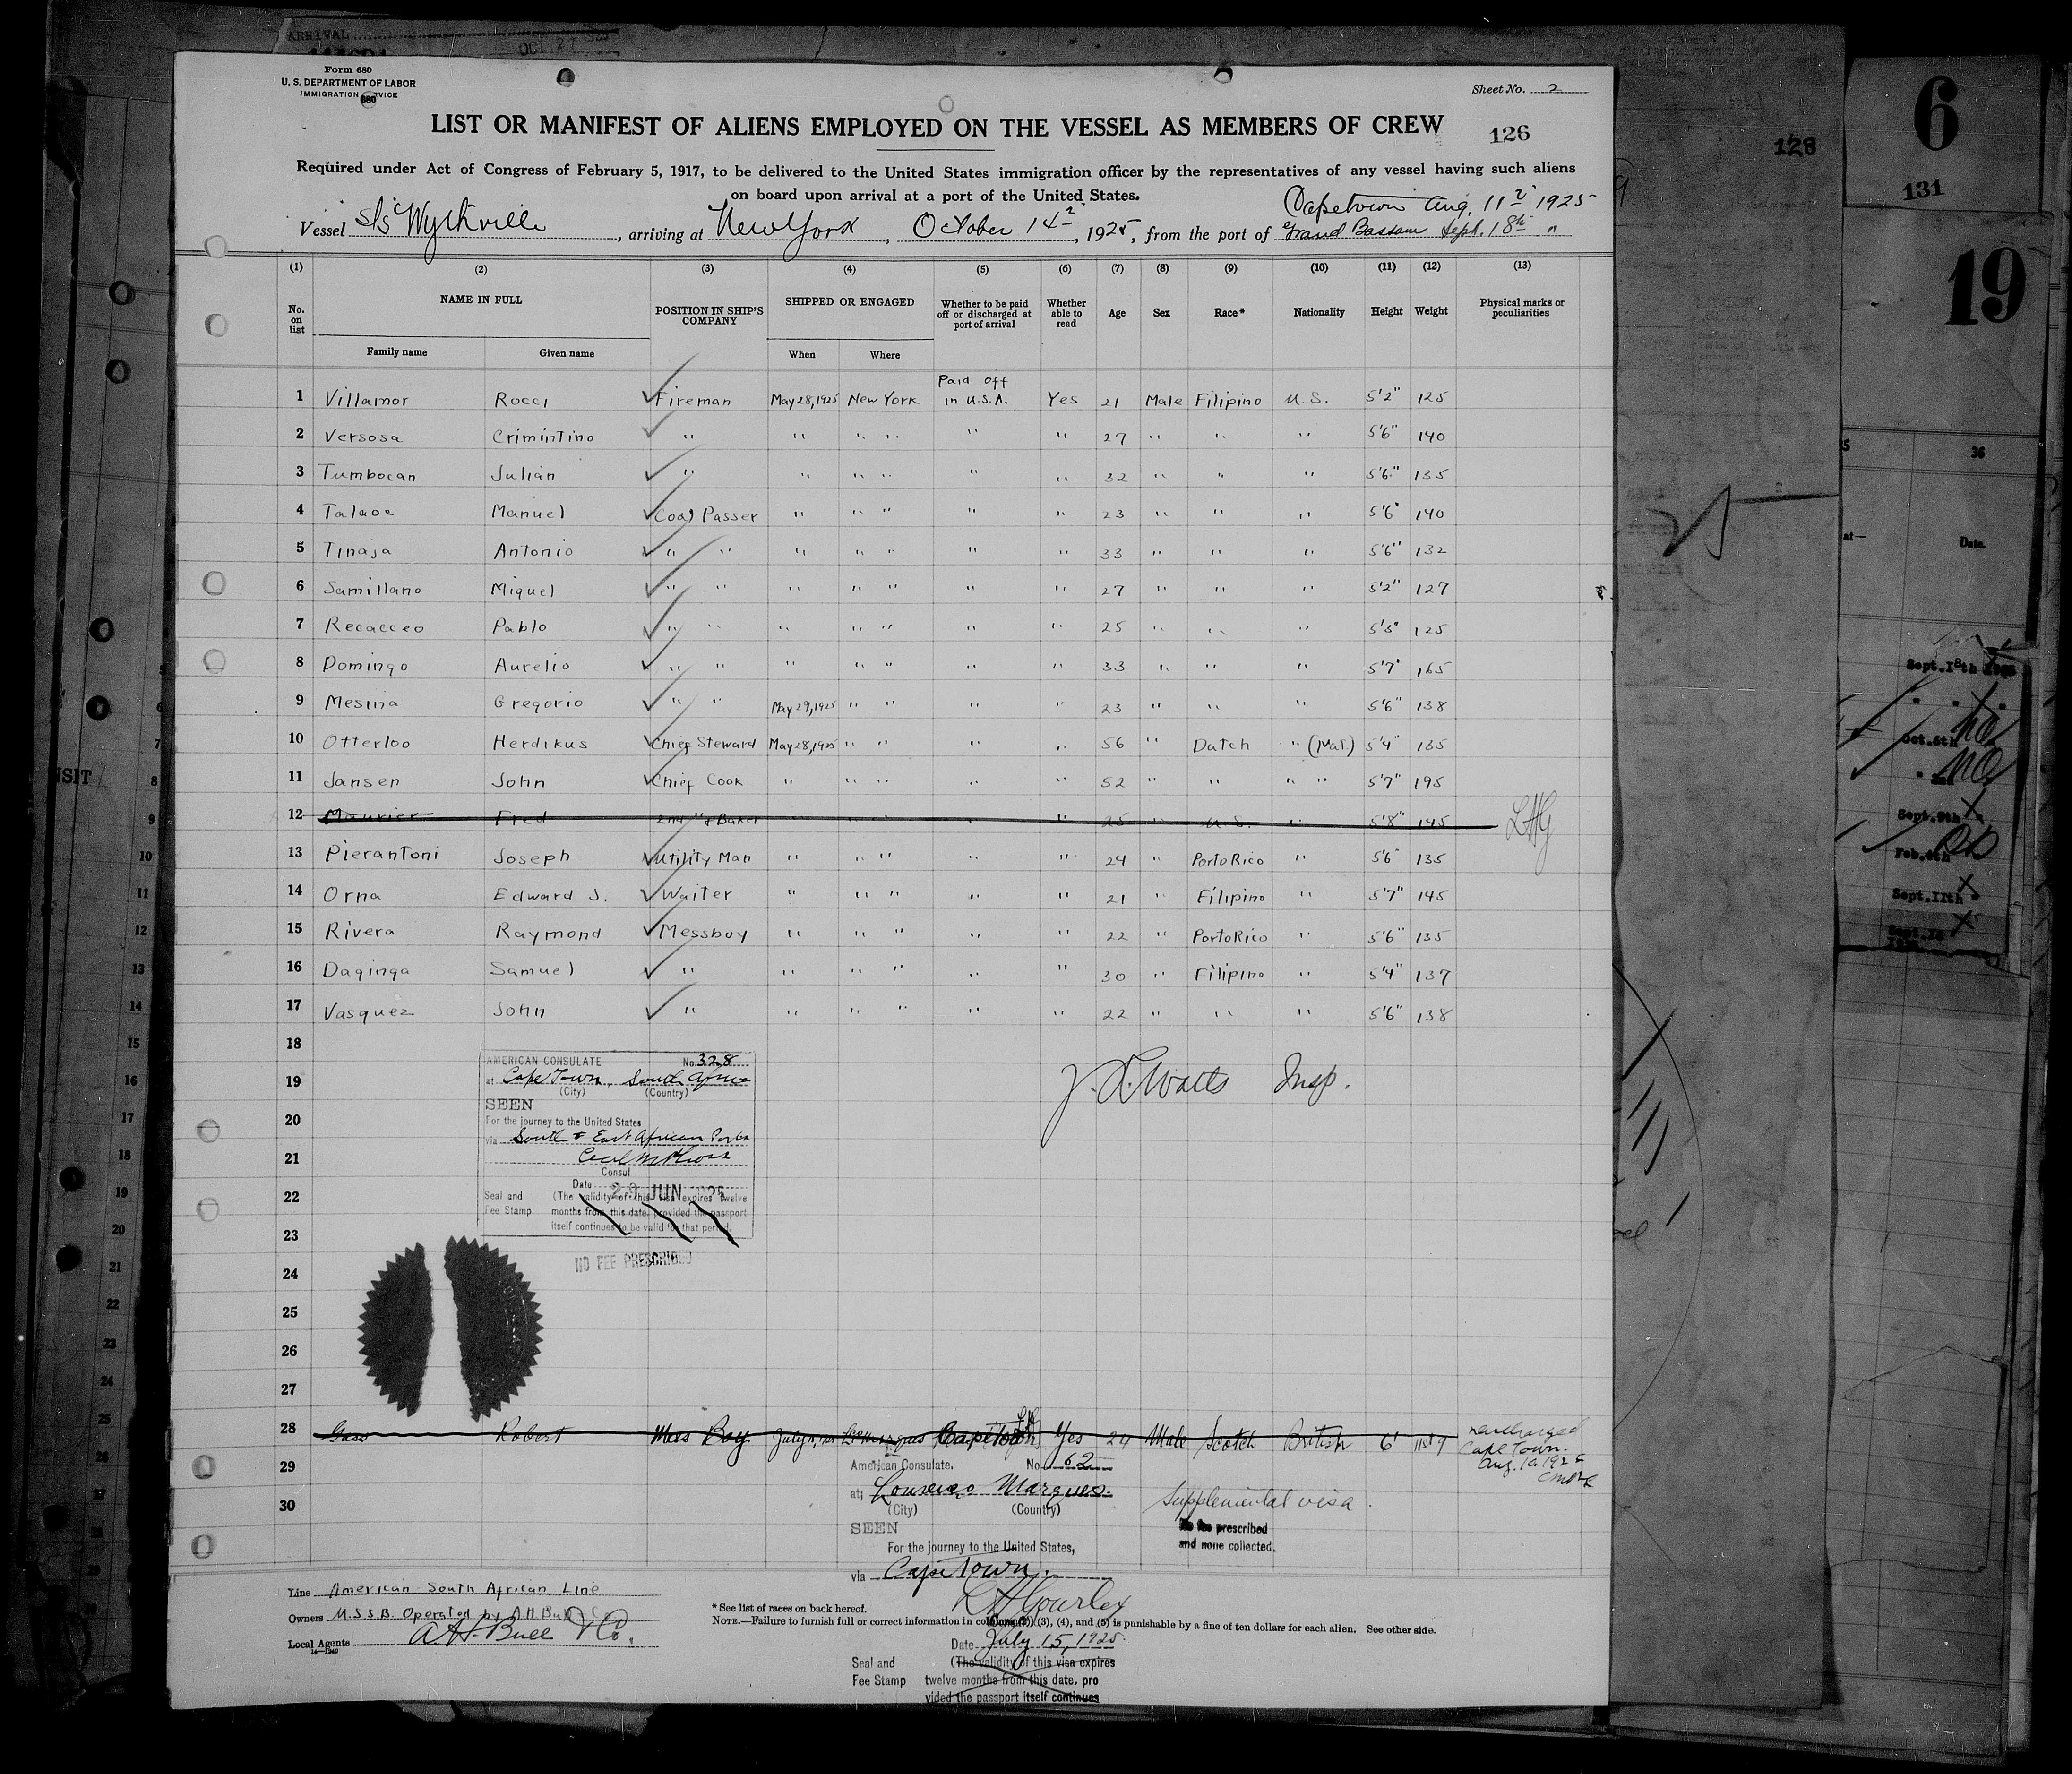 ARRIVAL
OCT 27
Form 680
U. S. DEPARTMENT OF LABOR
IMMIGRATION SERVICE
680
Sheet No. 2
LIST OR MANIFEST OF ALIENS EMPLOYED ON THE VESSEL AS MEMBERS OF CREW
126
Required under Act of Congress of February 5, 1917, to be delivered to the United States immigration officer by the representatives of any vessel having such aliens
on board upon arrival at a port of the United States.
Capetown Aug. 11th 1925
Vessel S/S Wytheville, arriving at New York, October 14th, 1925, from the port of Grand Bassam Sept. 18th "
(1) (2) (3) (4) (5) (6) (7) (8) (9) (10) (11) (12) (13)
No. on list NAME IN FULL POSITION IN SHIP'S COMPANY SHIPPED OR ENGAGED Whether to be paid off or discharged at port of arrival Whether able to read Age Sex Race* Nationality Height Weight Physical marks or peculiarities
Family name Given name When Where
1 Villamor Rocci Fireman May 28, 1925 New York Paid off in U.S.A. Yes 21 Male Filipino U.S. 5'2" 125
2 Versosa Crimintino " " " " " " 27 " " " 5'6" 140
3 Tumbocan Julian " " " " " " 32 " " " 5'6" 135
4 Talaoc Manuel Coal Passer " " " " " 23 " " " 5'6" 140
5 Tinaja Antonio " " " " " " " 33 " " " 5'6" 132
6 Samillano Miguel " " " " " " " 27 " " " 5'2" 127
7 Recacceo Pablo " " " " " " " 25 " " " 5'3" 125
8 Domingo Aurelio " " " " " " " 33 " " " 5'7" 165
9 Mesina Gregorio " " May 29, 1925 " " " " 23 " " " 5'6" 138
10 Otterloo Herdikus Chief Steward May 28, 1925 " " " " 56 " Dutch " (Nat) 5'4" 135
11 Jansen John Chief Cook " " " " " 52 " " " " 5'7" 195
12 Maurier Fred 2nd " & Baker " " " " " 25 " U.S. " 5'8" 145 LHG
13 Pierantoni Joseph Utility Man " " " " " 24 " Porto Rico " 5'6" 135
14 Orna Edward J. Waiter " " " " " 21 " Filipino " 5'7" 145
15 Rivera Raymond Messboy " " " " " 22 " Porto Rico " 5'6" 135
16 Daginga Samuel " " " " " " 30 " Filipino " 5'4" 137
17 Vasquez John " " " " " " 22 " " " 5'6" 138
18
19
20
21
22
23
24
25
26
27
AMERICAN CONSULATE No. 328
at Cape Town, South Africa
(City) (Country)
SEEN
For the journey to the United States
via South & East African Ports
Consul
Date 29 JUN 1925
Seal and Fee Stamp (The validity of this visa expires twelve
months from this date, provided the passport
itself continues to be valid for that period.
NO FEE PRESCRIBED
J. L. Watts Insp.
28 Robert Mess Boy July Capetown Yes 24 Male Scotch British 6' Discharged
Cape Town.
Aug. 10 1925
29
30
American Consulate. No. 62
at Lourenco Marques.
(City) (Country)
SEEN
For the journey to the United States,
via Cape Town.
Supplemental visa.
No fee prescribed
and none collected.
Line American South African Line
Owners U.S.S.B. Operated by A H Bull
Local Agents A H. Bull & Co.
14—1240
* See list of races on back hereof.
L H Gourley
NOTE.—Failure to furnish full or correct information in columns (2), (3), (4), and (5) is punishable by a fine of ten dollars for each alien. See other side.
Date July 15, 1925.
Seal and Fee Stamp (The validity of this visa expires
twelve months from this date, pro
vided the passport itself continues
128
6
131
19
36
at—
Date.
Sept. 18th
Oct. 6th
Sept. 9th
Feb. 6th
Sept. 11th
NSIT
5
6
7
8
9
10
11
12
13
14
15
16
17
18
19
20
21
22
23
24
25